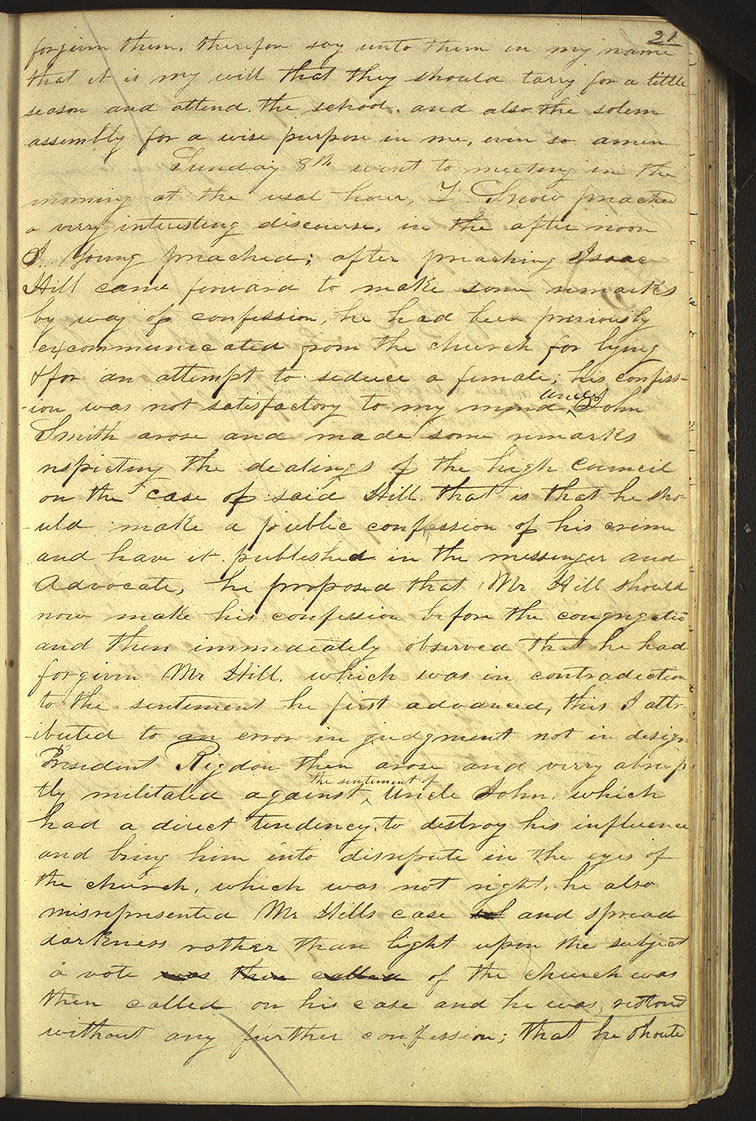 21
forgiven them, therefore say unto them in my name
that it is my will that they should tarry for a little
season and attend the school, and also the solem
assembly for a wise purpose in me, even so amen
Sunday 8th went to meeting in the
morning at the usal hour, Z. Snow preached
a verry interesting discourse, in the after noon
J. Young preached; after preaching Isaac
Hill came forward to make some remarks
by way of confession, he had been previously
excommunicated from the church for lying
& for an attempt to seduce a female; his confiss-
-ion was not satisfactory to my mind, Uncle John
Smith arose and made some remarks
respecting the dealings of the high council
on the case of said Hill, that is that he sho-
-uld make a public confession of his crime
and have it published in the messenger and
Advocate, he proposed that Mr Hill should
now make his confession before the congregatio
and then immediately observed that he had
forgiven Mr Hill, which was in contradiction
to the sentiment he first advanced, this I attr-
-ibuted to an error in judgment not in design
President Rigdon then arose and verry abrup-
tly militated against the sentiment of Uncle John, which
had a direct tendency to destroy his influence
and bring him into disrepute in the eyes of
the church, which was not right, he also
misrepresented Mr Hills case and spread
darkness rather than light upon the subject
a vote was then called of the church was
then called on his case and he was restored
without any further confession; that he should